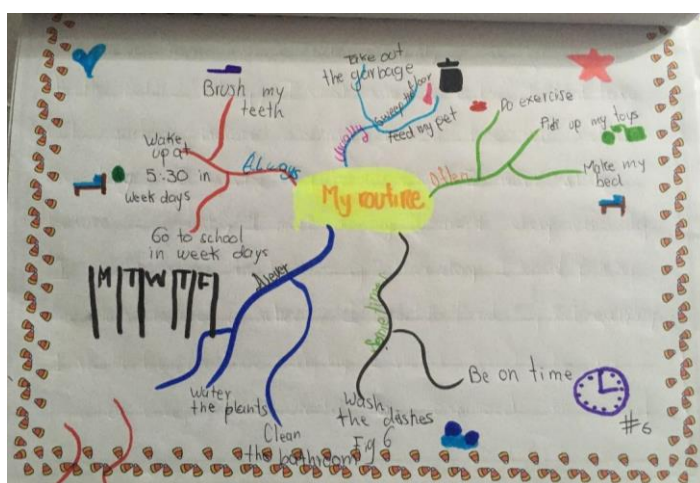 My routine
Always
Brush my
teeth
Wake
up at
5:30 in
week days
Go to school
in week days
Usually
Take out
the garbage
Sweep the floor
Feed my pet
Often
Do exercise
Pick up my toys
Make my
bed
Never
M T W T F
Water
the plants
Clean
the bathroom
Sometimes
Wash
the dashes
Be on time
Fig 6
#6